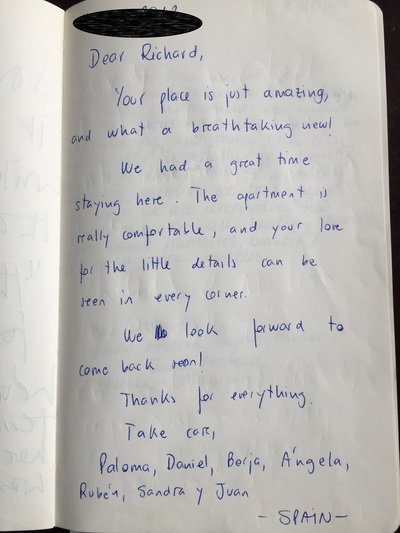 Dear Richard,
Your place is just amazing,
and what a breathtaking view!
We had a great time
staying here. The apartment is
really comfortable, and your love
for the little details can be
seen in every corner.
We look forward to
come back soon!
Thanks for everything.
Take care,
Paloma, Daniel, Borja, Ángela,
Rubén, Sandra y Juan
- SPAIN -